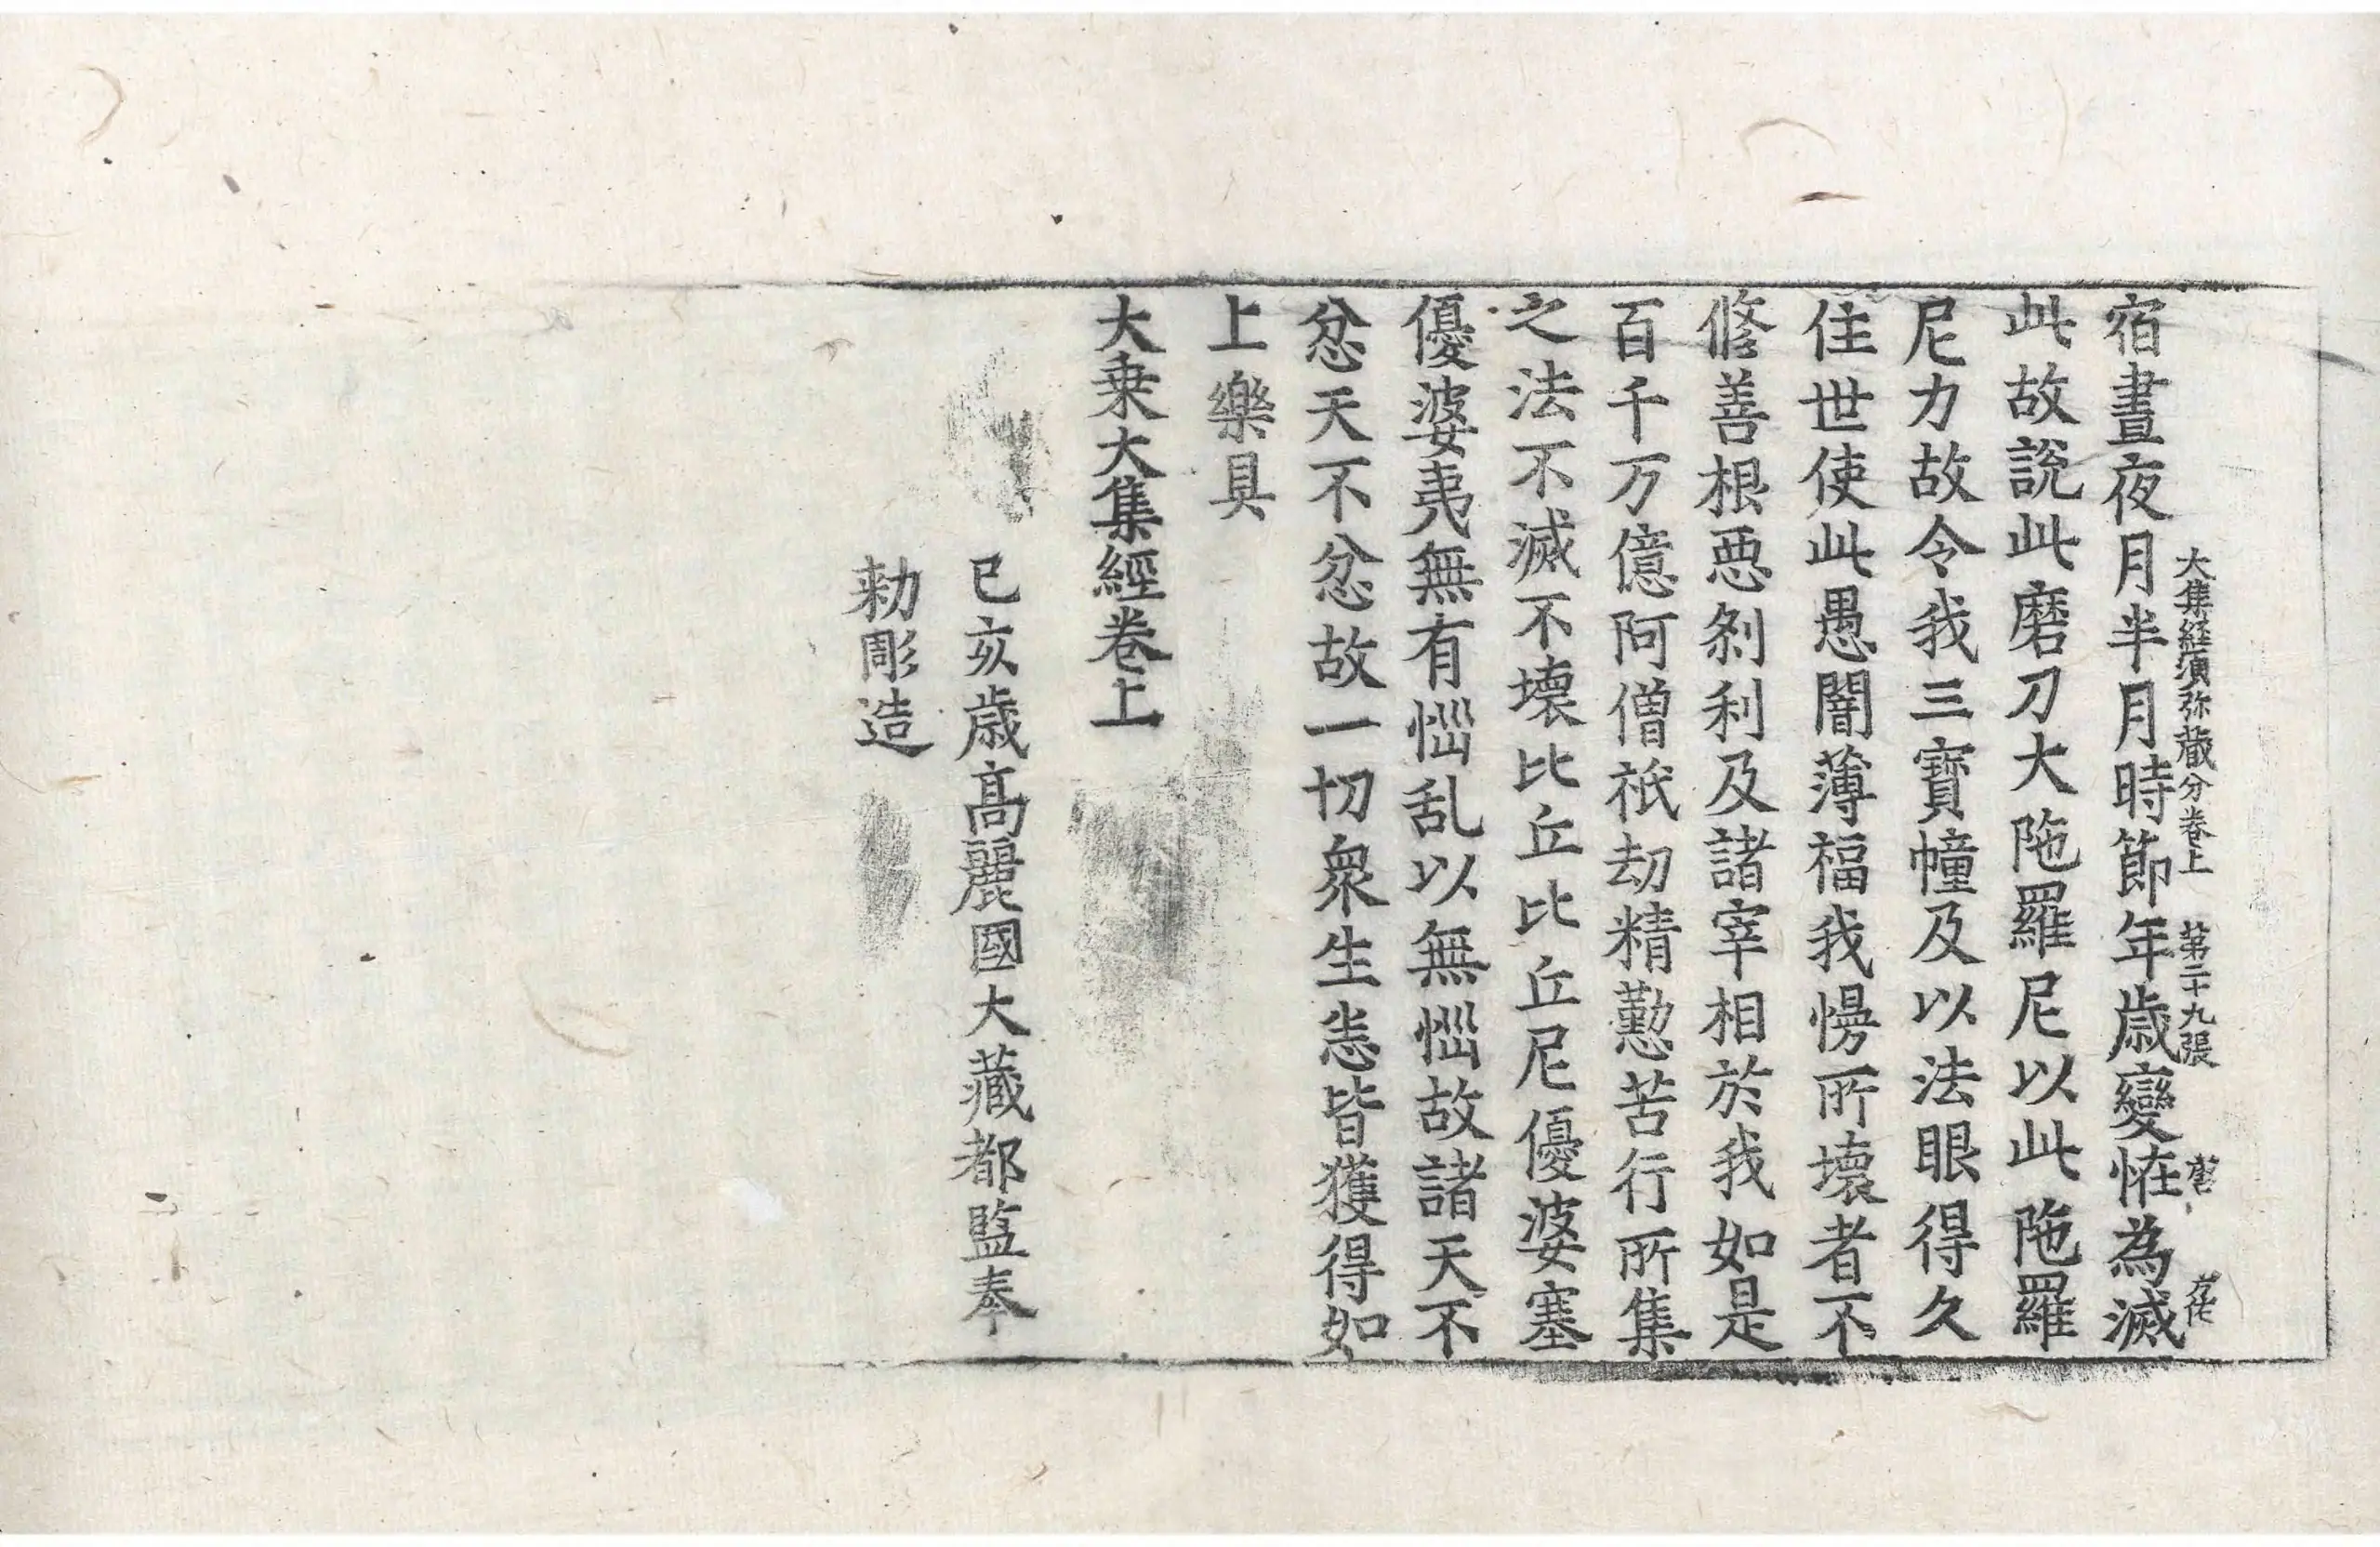 大集経須弥藏分卷上 第二十九張 唐
宿晝夜月半月時節年歳變恠為滅
此故說此磨刀大陁羅尼以此陁羅
尼力故令我三寶幢及以法眼得久
住世使此愚闇薄福我慢所壞者不
修善根惡剎利及諸宰相於我如是
百千万億阿僧祇劫精懃苦行所集
之法不滅不壞比丘比丘尼優婆塞
優婆夷無有惱乱以無惱故諸天不
忿天不忿故一切衆生悉皆獲得如
上樂具
大乗大集經卷上
己亥歳高麗國大藏都監奉
勅彫造